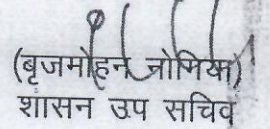 (बृजमोहन नोमिया)
शासन उप सचिव